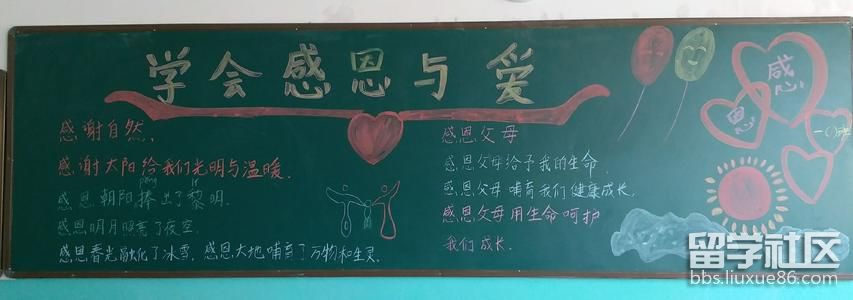 学会感恩与爱
感谢自然.
感谢太阳给我们光明与温暖.
pěng lí
感恩朝阳捧出了黎明.
感恩明月照亮了夜空.
感恩春光融化了冰雪. 感恩大地哺育了万物和生灵.
感恩父母
感恩父母给予我的生命.
感恩父母哺育我们健康成长.
感恩父母用生命呵护
我们成长.
感
恩
留学社区
bbs.liuxue86.com